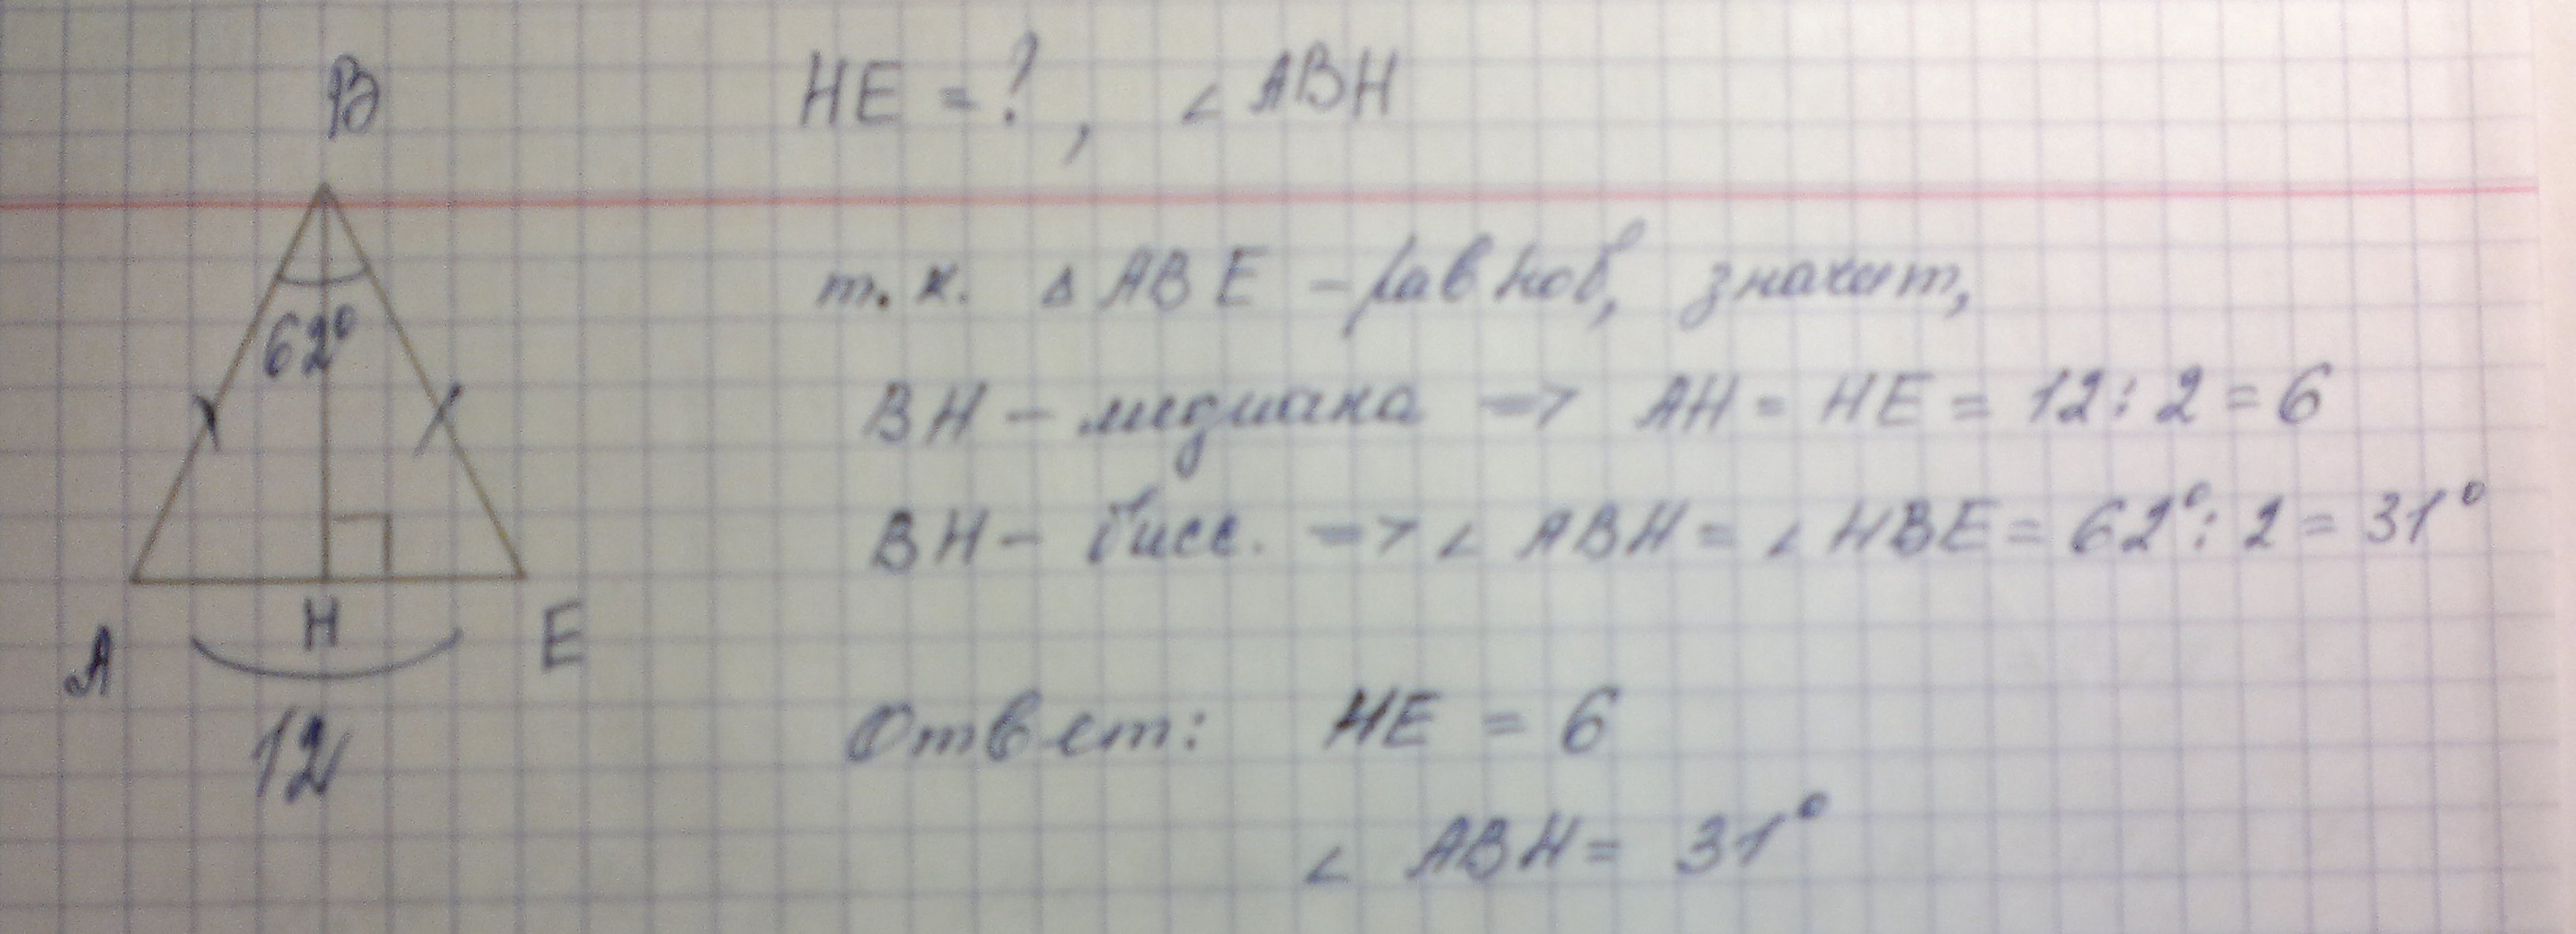 HE = ?, ∠ ABH
B
62°
A
H
E
12
т.к. Δ ABE – равноб, значит,
BH – медиана => AH = HE = 12 : 2 = 6
BH – бисс. => ∠ ABH = ∠ HBE = 62° : 2 = 31°
Ответ: HE = 6
∠ ABH = 31°